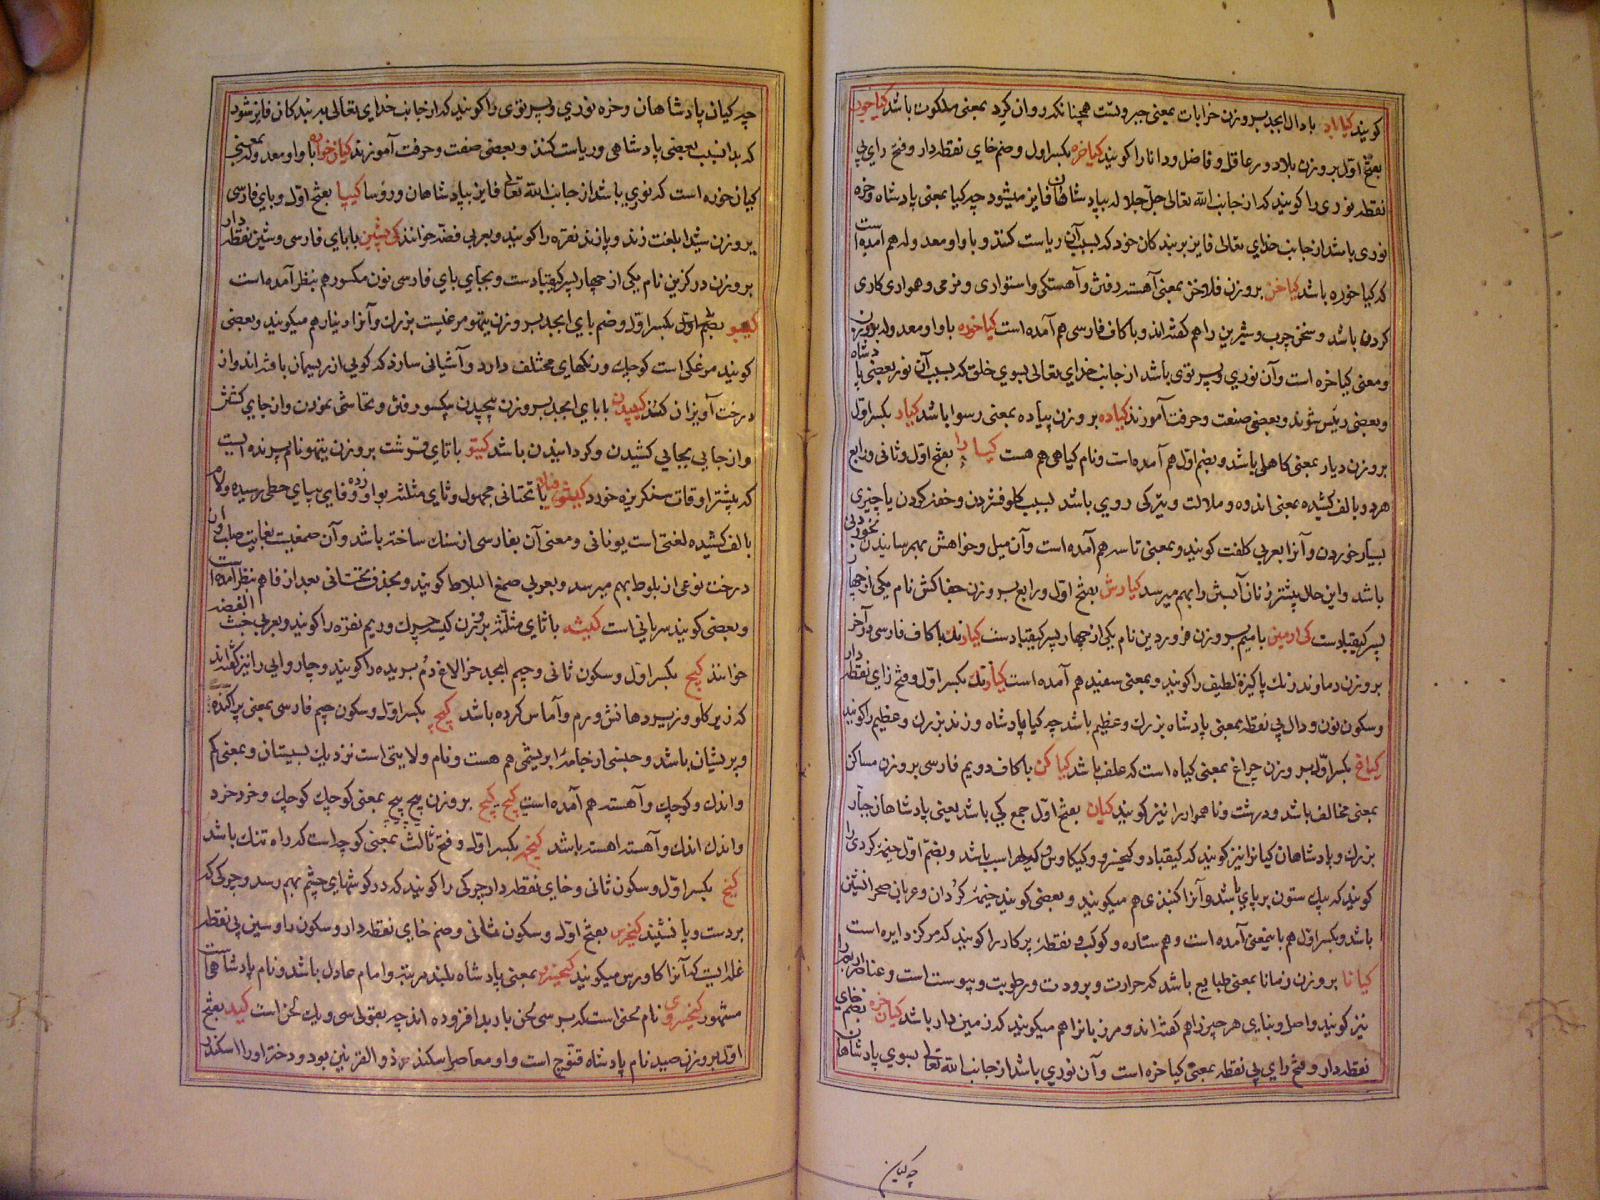 کویند کیاباد با دال ابجد بر وزن خرابات بمعنی جبروتست همچنانکه روان کرد بمعنی ملکوت باشد کیاخور
بفتح اول بر وزن بلادور عاقل و فاضل و دانا را کویند کیاخره بکسر اول و ضم خای نقطه دار و فتح رای بی
نقطه نوری را کویند که از جانب الله تعالی جل جلاله بپادشاهان فایز میشود چه کیا بمعنی پادشاه و خره
نوری باشد از جانب خدای تعالی فایز بر بندکان خود که بسبب آن ریاست کنند و با واو معدوله هم آمده است
که کیاخوره باشد کیاخن بر وزن فلاخن بمعنی آهسته رفتن و آهستکی و استواری و نرمی و همواری کاری
کردن باشد و سخن چرب و شیرین را هم کفته اند و با کاف فارسی هم آمده است کیاخوره با واو معدوله بر وزن
و معنی کیاخره است و آن نوری و پرتوی باشد از جانب خدای تعالی بسوی خلق که بسبب آن نور بعضی پادشاه
و بعضی رئیس شوند و بعضی صنعت و حرفت آموزند کیاده بر وزن پیاده بمعنی رسوا باشد کیار بکسر اول
بر وزن دیار بمعنی کاهلی باشد و بضم اول هم آمده است و نام کیاهی هم هست کیارا بفتح اول و ثانی و رابع
هر دو بالف کشیده بمعنی اندوه و ملالت و تیرکی روی باشد بسبب کلو فشردن و خفه کردن یا چیزی
بسیار خوردن و آنرا بعربی کلفت کویند و بمعنی تاسه هم آمده است و آن میل و خواهش بهم رسانیدن بخوردنی
باشد و این حال بیشتر زنان آبستن را بهم میرسد کیارش بفتح اول و رابع بر وزن جفاکش نام یکی از چهار
پسر کیقبادست کی ارمین با میم بر وزن فروردین نام یکی از چهار پسر کیقبادست کیارنک با کاف فارسی در آخر
بر وزن دماوند رنک پاکیزه لطیف را کویند و بمعنی سفید هم آمده است کیازند بکسر اول و فتح زای نقطه دار
و سکون نون و دال بی نقطه بمعنی پادشاه بزرک و عظیم باشد چه کیا پادشاه و زند بزرک و عظیم را کویند
کیاغ بکسر اول بر وزن چراغ بمعنی کیاه است که علف باشد کیاکن با کاف دویم فارسی بر وزن مساکن
بمعنی مخالف باشد و درشت و ناهموار را نیز کویند کیان بفتح اول جمع کی باشد یعنی پادشاهان جبار
بزرک و پادشاهان کیانرا نیز کویند که کیقباد و کیخسرو و کیکاوس و کی لهراسب باشد و بضم اول خیمه کردی را
کویند که بیک ستون بر پای باشد و آنرا کنبذی هم میکویند و بعضی کویند خیمه کردان و عربان صحرانشین
باشد و بکسر اول هم باینمعنی آمده است و هم ستاره و کوکب و نقطه پرکار را کویند که مرکز دایره است
کیانا بر وزن زمانا بمعنی طبایع باشد که حرارت و برودت و رطوبت و یبوست است و عناصر اربعه را
نیز کویند و اصل و بنای هر چیز را هم کفته اند و مرزبانرا هم میکویند که زمین دار باشد کیان خره بضم خای
نقطه دار و فتح رای بی نقطه بمعنی کیاخره است و آن نوری باشد از جانب الله تعالی بسوی پادشاهان
چه کیان
چه کیان پادشاهان و خره نوری و پرتوی را کویند که از جانب خدای تعالی بر بندکان فایز شود
که بدان سبب بعضی پادشاهی و ریاست کنند و بعضی صنعت و حرفت آموزند کیان خوره با واو معدوله بمعنی
کیان خره است که نوری باشد از جانب الله تعالی فایز بپادشاهان و رؤسا کیپا بفتح اول و بای فارسی
بر وزن شیدا بلغت زند و پازند نقره را کویند و بعربی فضه خوانند کی پشین با بای فارسی و شین نقطه دار
بر وزن در کزین نام یکی از چهار پسر کیقبادست و بجای بای فارسی نون مکسور هم بنظر آمده است
کیبو بکسر اول و ضم بای ابجد بر وزن تیهو مرغیست بزرک و آنرا دینار هم میکویند و بعضی
کویند مرغکی است کوچک و رنکهای مختلف دارد و آشیانی سازد که کویی از ریسمان بافته اند و از
درخت آویزان کنند کیبیدن با بای ابجد بر وزن پیچیدن بیکسو رفتن و تحاشی نمودن و از جای کشتن
و از جایی بجایی کشیدن و کردانیدن باشد کیتو با تای قرشت بر وزن تیهو نام پرنده ایست
که بیشتر اوقات سنکریزه خورد کیثوفیلا با تحتانی مجهول و ثای مثلثه بواو زده و فای بیای حطی رسیده و لام
بالف کشیده لغتی است یونانی و معنی آن بفارسی از سنک ساخته باشد و آن صمغیست بغایت صلب و از
درخت نوعی از بلوط بهم میرسد و بعربی صمغ البلاط کویند و بحذف تحتانی بعد از فا هم بنظر آمده است
و بعضی کویند سریانی است کیثه با ثای مثلثه بر وزن کیسه چرک و ریم نقره را کویند و بعربی خبث الفضه
خوانند کیج بکسر اول و سکون ثانی و جیم ابجد خر الاغ دم بریده را کویند و چاروایی را نیز کفته اند
که زیر کلو و زیر دهانش ورم و آماس کرده باشد کیچ بکسر اول و سکون جیم فارسی بمعنی پراکنده
و پریشان باشد و جنسی از جامه ابریشمی هم هست و نام ولایتی است نزدیک بسیستان و بمعنی کم
و اندک و کوچک و آهسته هم آمده است کیچ کیچ بر وزن پیچ پیچ بمعنی کوچک کوچک و خرد خرد
و اندک اندک و آهسته آهسته باشد کیچه بکسر اول و فتح ثالث بمعنی کوچه است که راه تنک باشد
کیخ بکسر اول و سکون ثانی و خای نقطه دار چرکی را کویند که در کوشهای چشم بهم رسد و چرکی که
بر دست و پا نشیند کیخرس بفتح اول و سکون ثانی و ضم خای نقطه دار و سکون را و سین بی نقطه
غله ایست که آنرا کاورس میکویند کیخسرو بمعنی پادشاه بلند مرتبه و امام عادل باشد و نام پادشاهی است
مشهور کیخسروی نام لحنی است که بر سی لحن باربد افزوده اند چه بقولی سی و یک لحن است کید بفتح
اول بر وزن صید نام پادشاه قنوج است و او معاصر اسکندر ذوالقرنین بود و دختر او را اسکندر